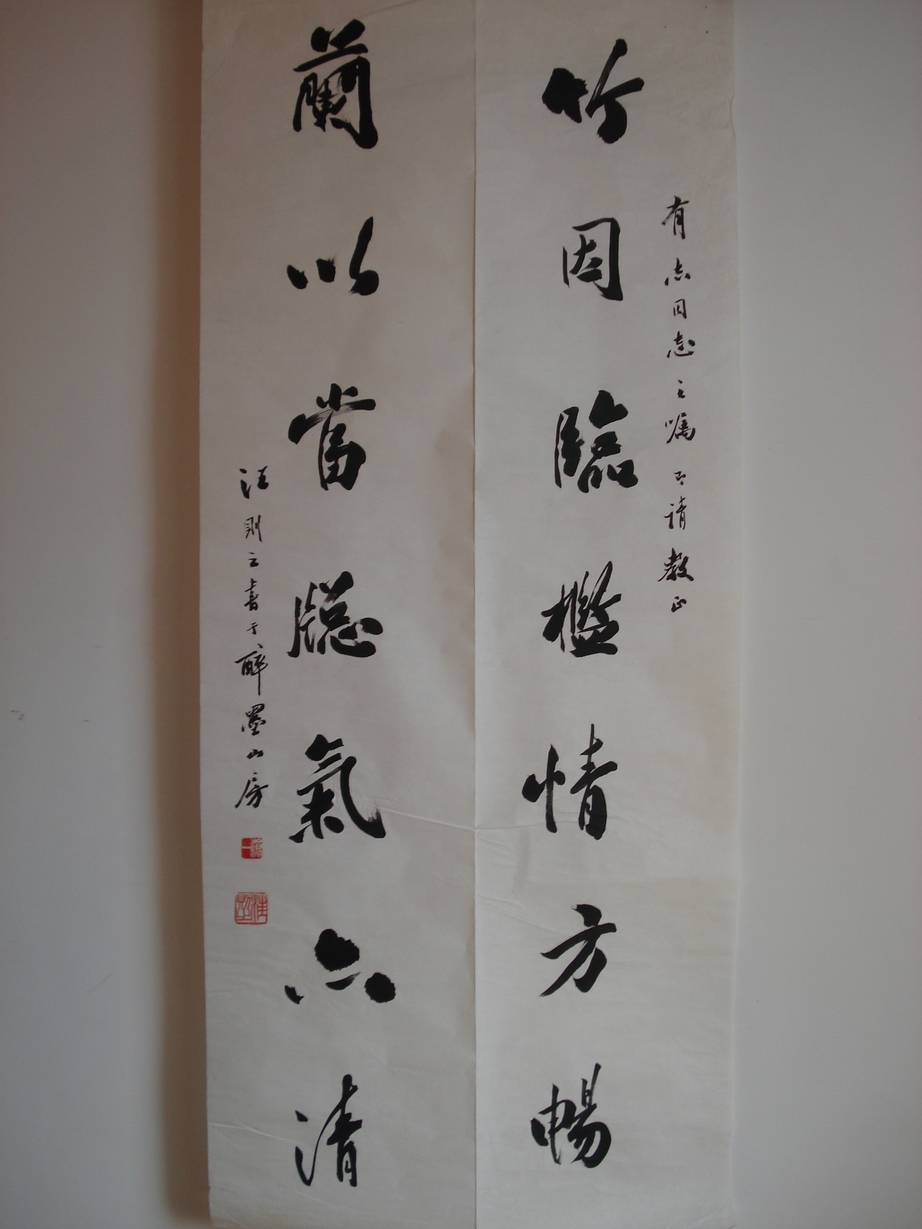 有志同志之嘱即请教正
竹因臨檻情方暢
蘭以當牕氣亦清
汪 書于醉墨山房